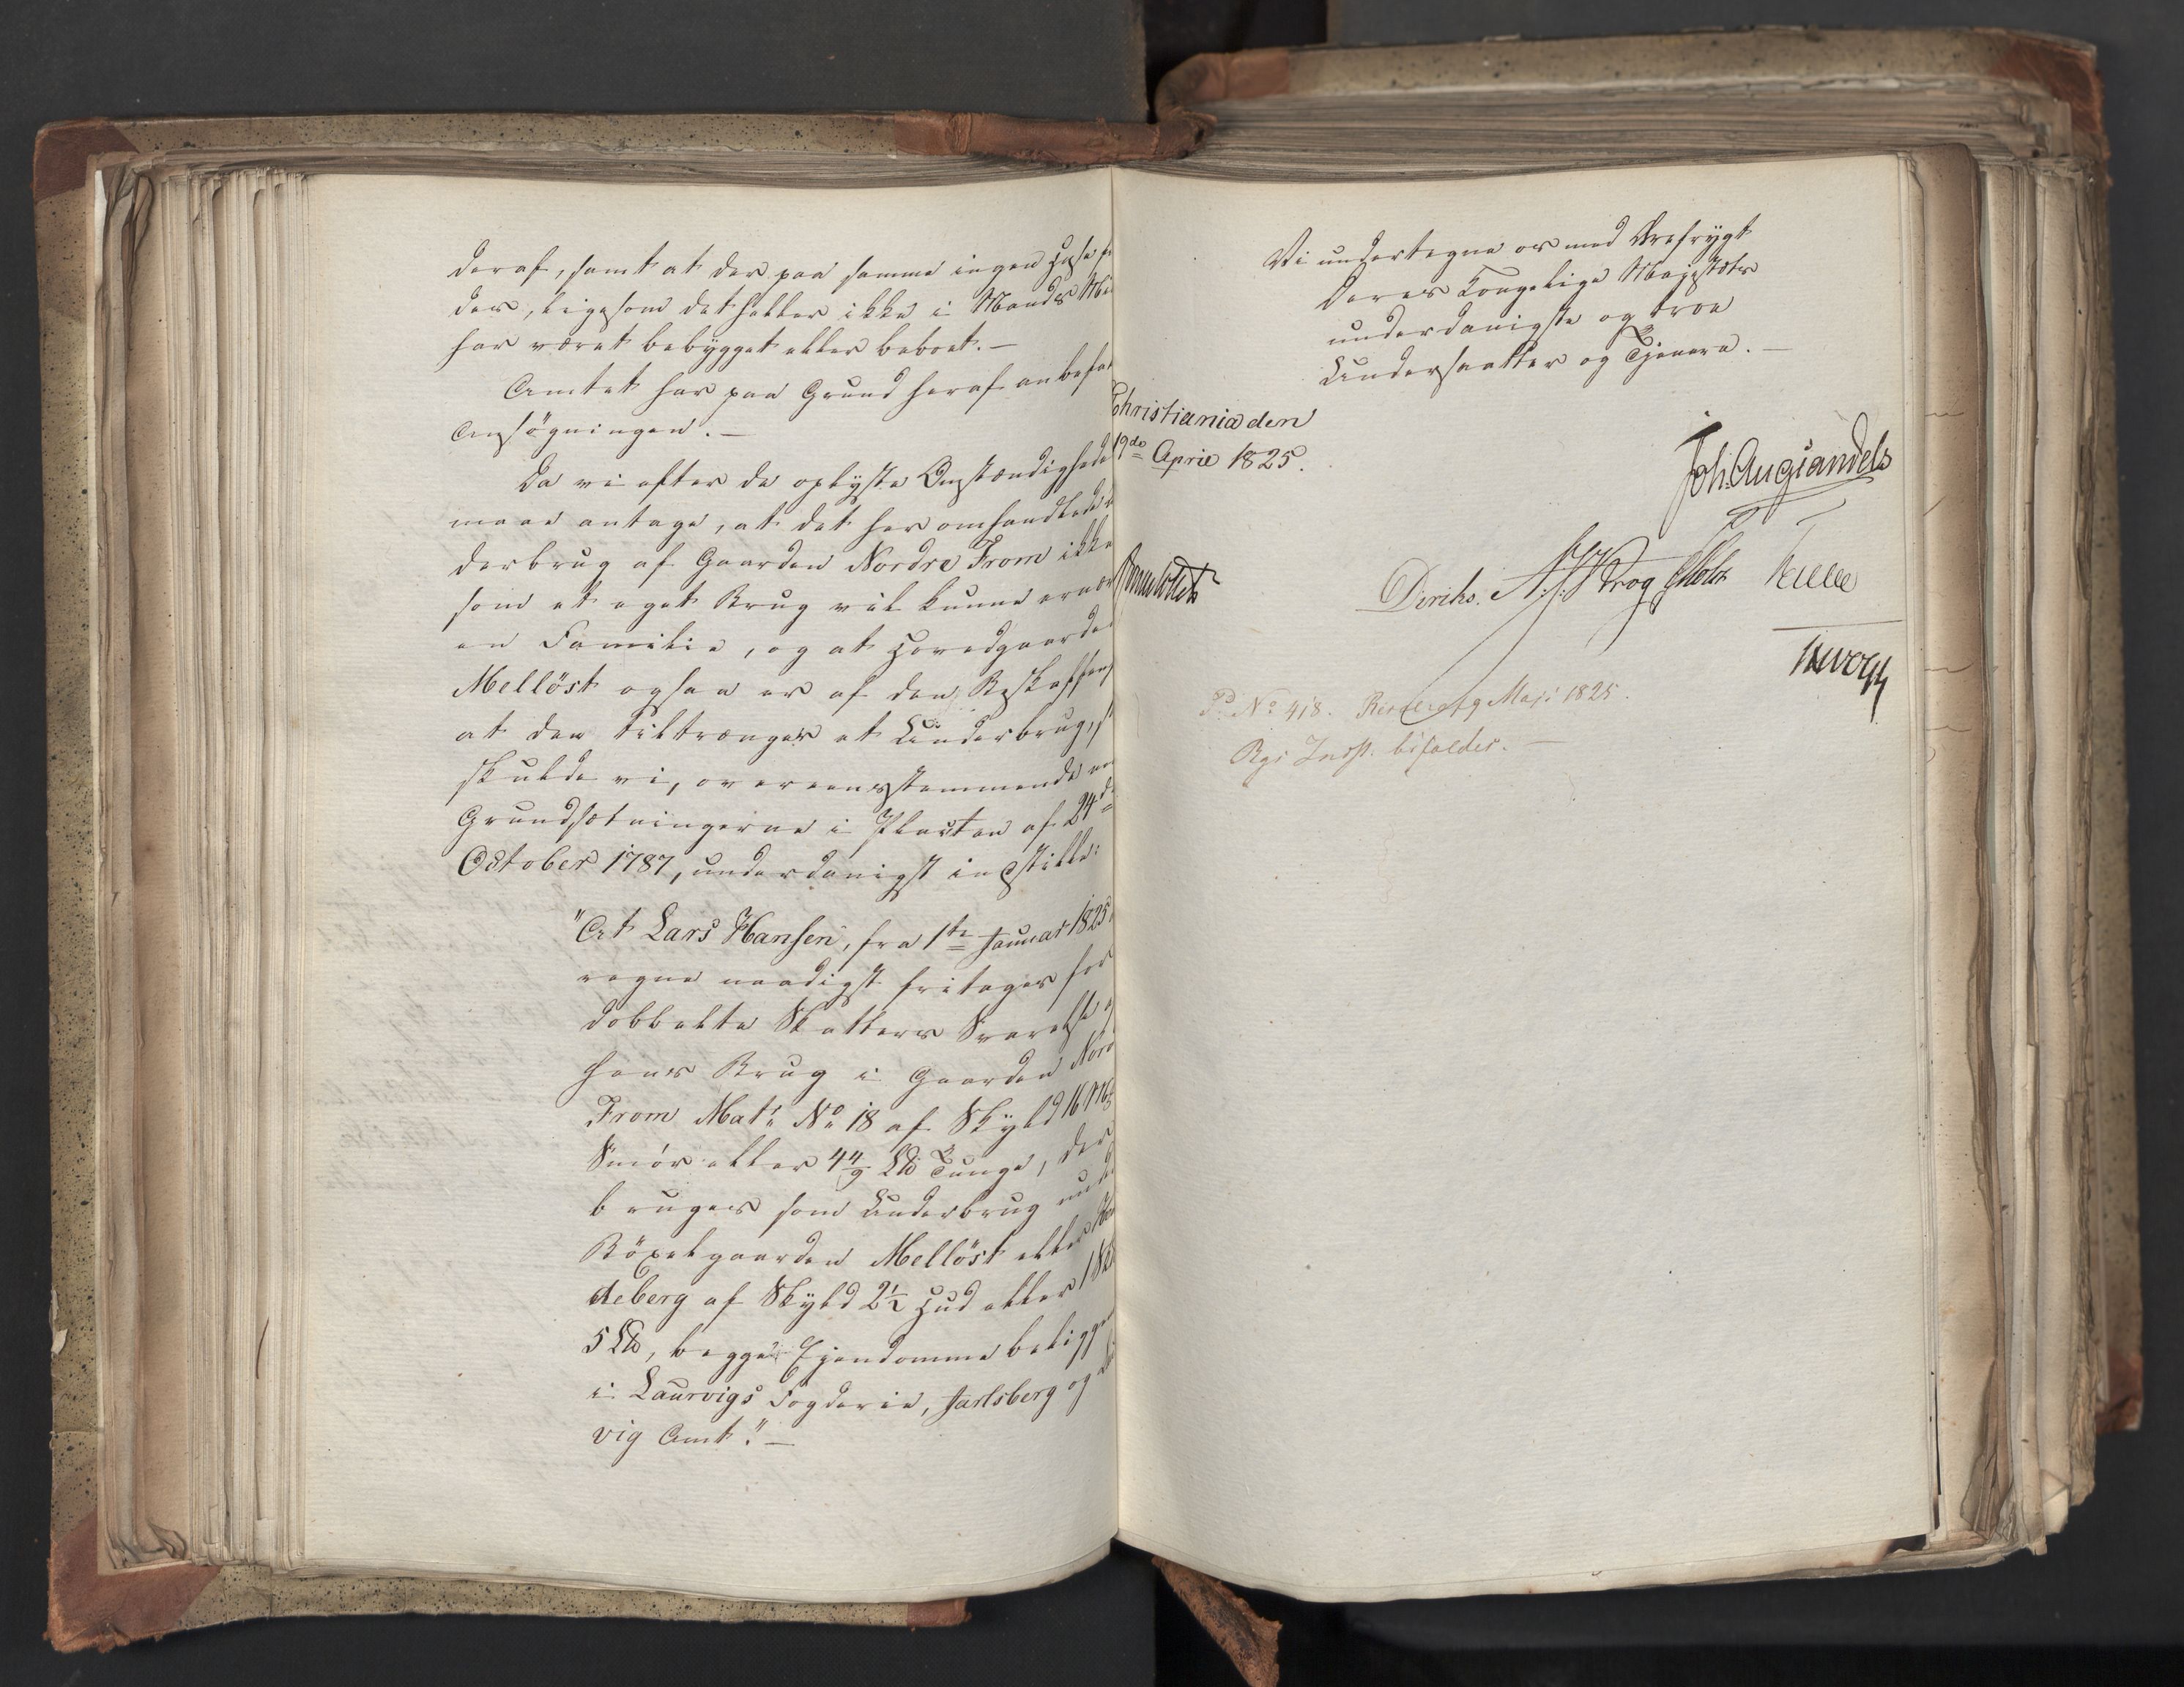 deraf, samt at der paa samme ingen Huse fin
des, ligesom det heller ikke i Mands Min
har været bebygget eller beboet. —
Amtet har paa Grund heraf anbefal
Ansøgningen. —
Da vi efter de oplyste Omstændighede
maae antage, at det her omhandlede
derbrug af Gaarden Nordre From ikke
som et eget Brug vil kunne ernær
en Familie, og at Hovedgaarde
Melløst ogsaa er af den Beskaffen
at den tiltrænger et Underbrug, s
skulde vi, overeensstemmende
Grundsætningerne i Placaten af 24de
October 1787, underdanigst indstille:
"At Lars Hansen, fra 1ste Januar 1825
regne naadigst fritages for
dobbelte Skatters Svarelse
hans Brug i Gaarden Nord
From Matr No 18 af Skyld 16
Smør eller 4 4/9 L℔ Tunge, der
bruges som Underbrug unde
Bøxelgaarden Melløst eller
deberg af Skyld 2½ Hud eller 1
5 L℔, begge Ejendomme beligge
i Laurvigs Fogderie, Jarlsberg og
vig Amt." —
Vi undertegne os med Ærefrygt
Deres Kongelige Majestæts
underdanigste og troe
Undersaatter og Tjenere. —
Christiania den
19de April 1825.
Joh. Aug Sandels
Diriks. Krog Holst
P. No 418. 9 Maji 1825.
Rgs Indst. bifaldes. —